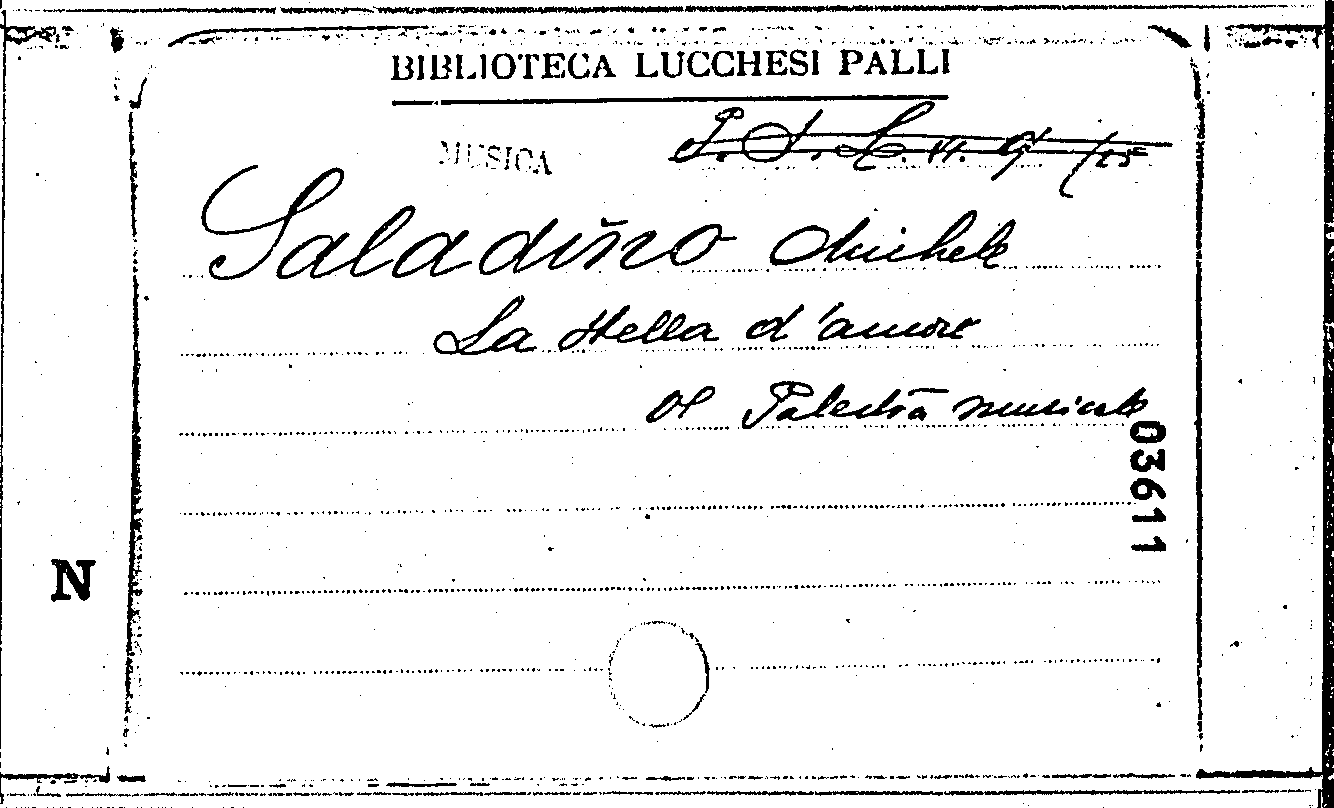 BIBLIOTECA LUCCHESI PALLI
MUSICA
P. S. L. VI. 9 /25
Saladino Michele
La Stella d'amore
Palestra musicale
03611
N